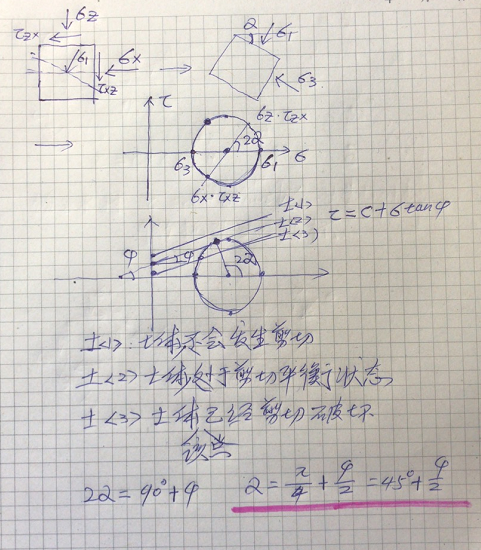 σz
τzx
σ1
σx
τxz
α
σ1
σ3
τ
σz·τzx
2α
σ
σ3
σ1
σx·τxz
土<1>
土<2>
土<3>
τ=c+σtanφ
φ
2φ
2α
土<1>: 土体不会发生剪切
土<2> 土体处于剪切平衡状态
土<3> 土体已经剪切破坏
该点
2α=90°+φ
α=π/4+φ/2=45°+φ/2